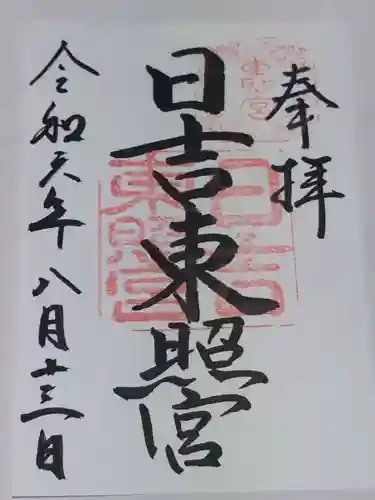 奉拝
日吉東照宮
令和元年八月十三日
日吉東照宮